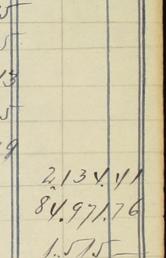 5
5
13
5
19
2,134.41
84,971.76
1.515—